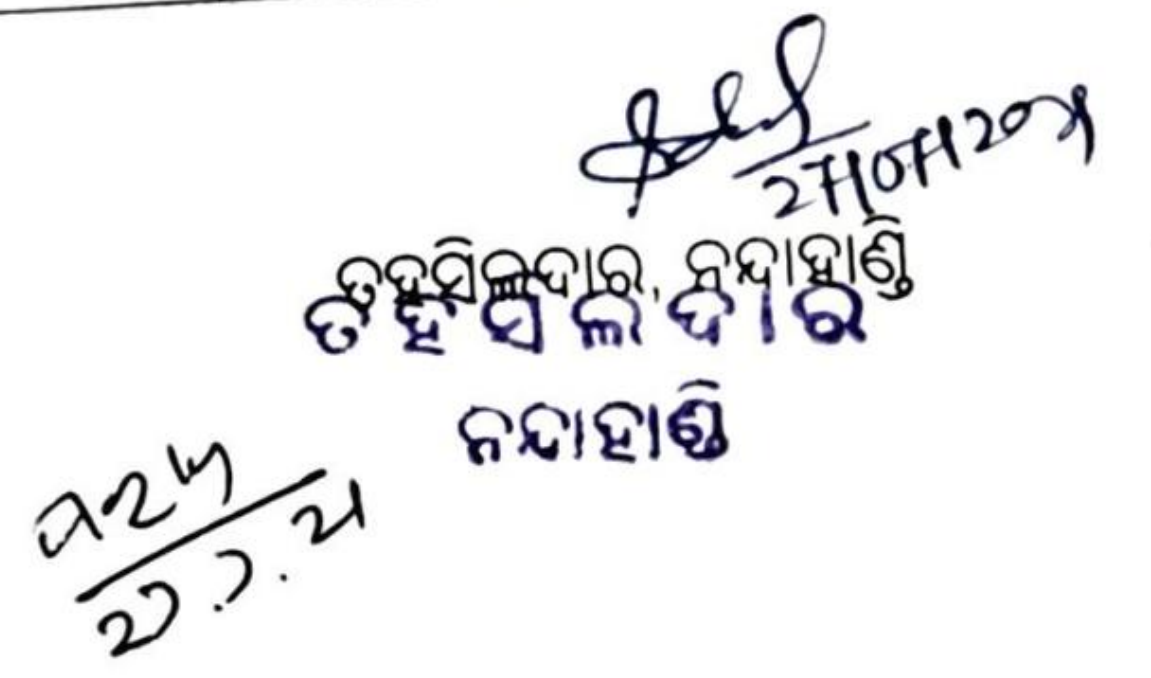 27/07/2021
ତହସିଲଦାର, ନନ୍ଦାହାଣ୍ଡି
ତହସିଲଦାର
ନନ୍ଦାହାଣ୍ଡି
27.7.21